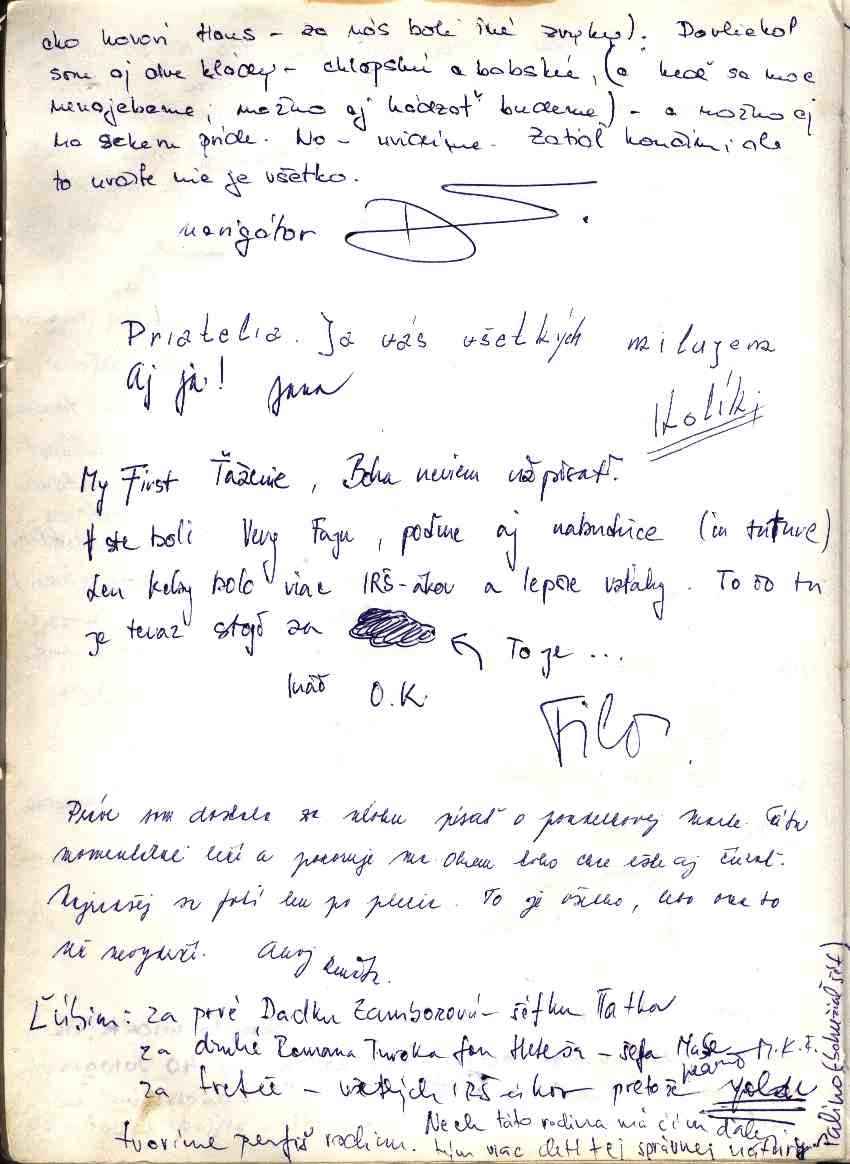 ako hovorí Haus - za nás boli iné zvyky). Dovliekol
som aj dve kládky - chlopské a babské, (a keď sa moc
nenajebeme, možno aj hádzať budeme) - a možno aj
na sekeru príde. No - uvidíme. Zatiaľ končím, ale
to určite nie je všetko.
navigátor
Priatelia. Ja vás všetkých milujem
Aj ja! Jana
Kolíkj
My First Ťaženie, Boha neviem už písať.
ste boli Very Fajn, poďme aj nabudúce (in future)
Len keby bolo viac IRŠ-ákov a lepšie vzťahy. To čo tu
je teraz stojí za
To je ...
Ináč O.K.
Filo.
Práve som dostala za úlohu písať o
momentálne leží a pozoruje ma Okrem toho chce ešte aj čítať.
Najradšej sa fotí len po plecia. To je všetko, lebo ona to
už nevydrží. Ahoj
Ľúbim: za prvé Dadku Zamborovú - šéfku Tatka
za druhé Romana Turoka fon Heteša - šéfa M.K.F.
za tretie - všetkých IRŠ-ákov pretože
tvoríme perfiš rodinu. Nech táto rodina má čím ďalej
tým viac detí tej správnej nátury
Palino (bohužiaľ šéf)